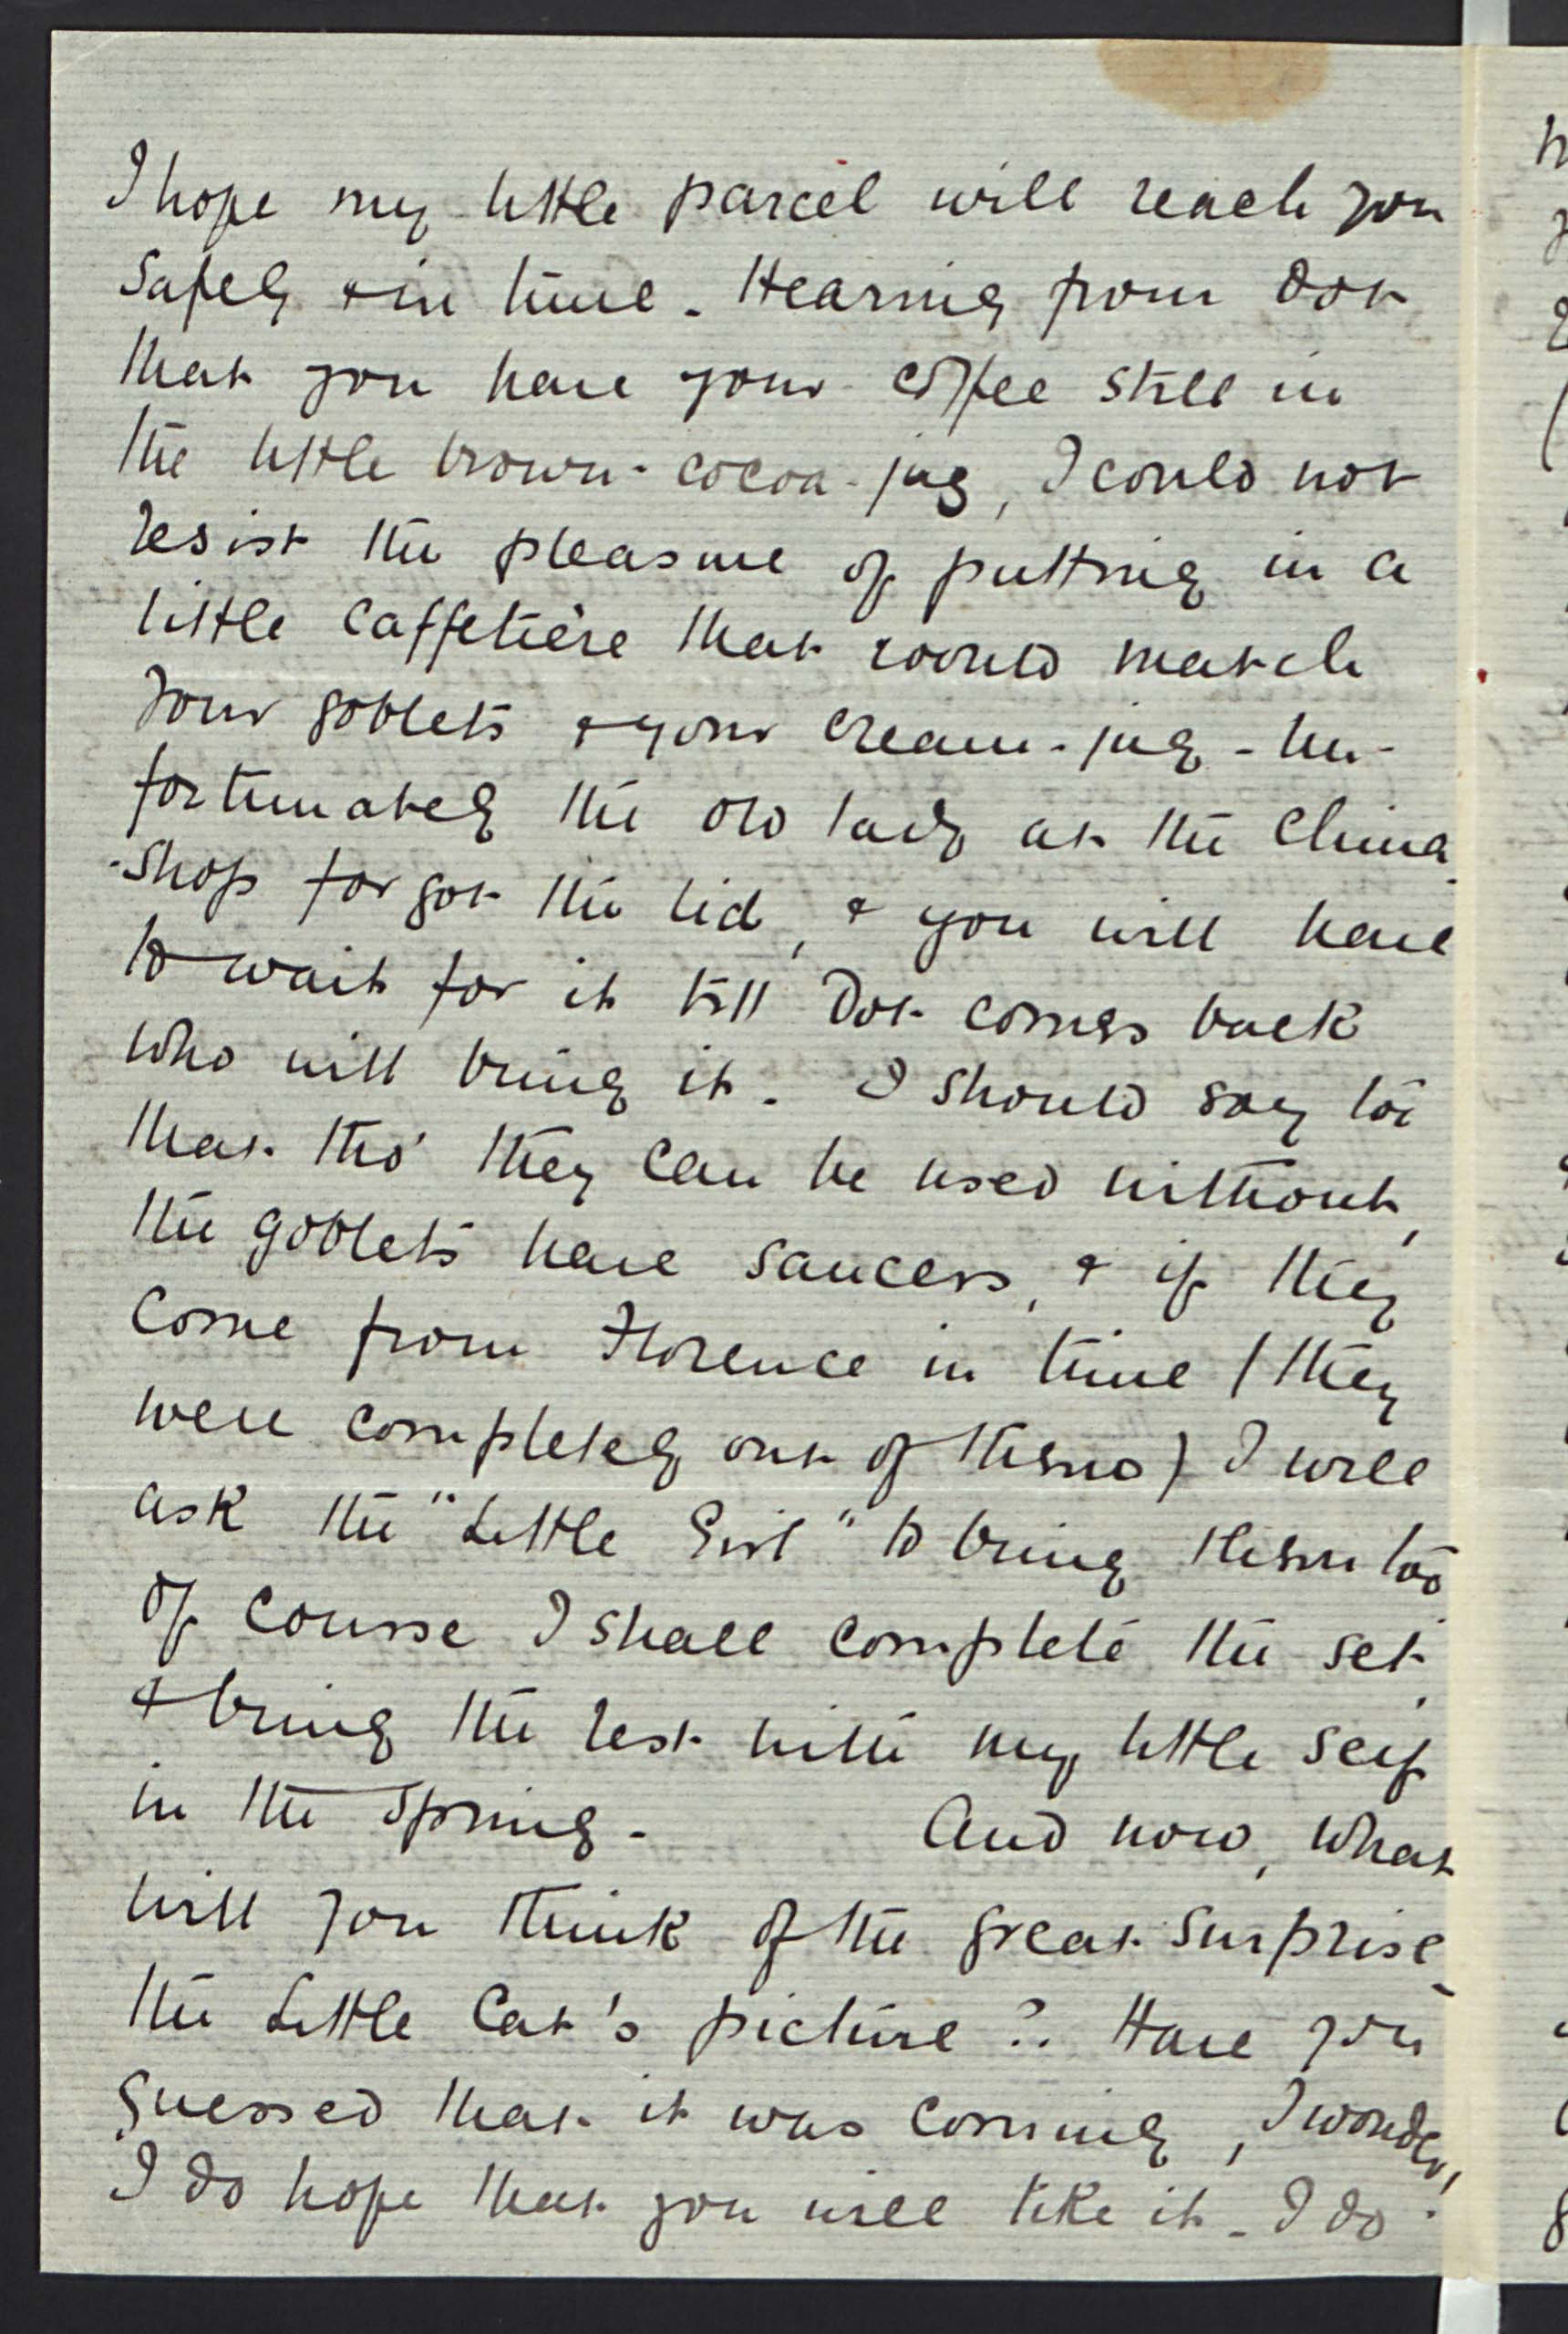 I hope my little parcel will reach you
safely & in time. Hearing from Dot
that you have your coffee still in
the little brown-cocoa-jug, I could not
resist the pleasure of putting in a
little caffetière that would match
your goblets & your cream-jug - Un-
fortunately the old lady at the China
-shop forgot the lid, & you will have
to wait for it till Dot comes back
who will bring it. I should say too
that tho' they can be used without,
the goblets have saucers, & if they
come from Florence in time (they
were completely out of them) I will
ask the "Little Girl" to bring them too
Of course I shall complete the set,
& bring the rest with my little self
in the Spring - And now, what
will you think of the great surprise -
the Little Cat's picture? Have you
guessed that it was coming, I wonder,
I do hope that you will like it - I do.